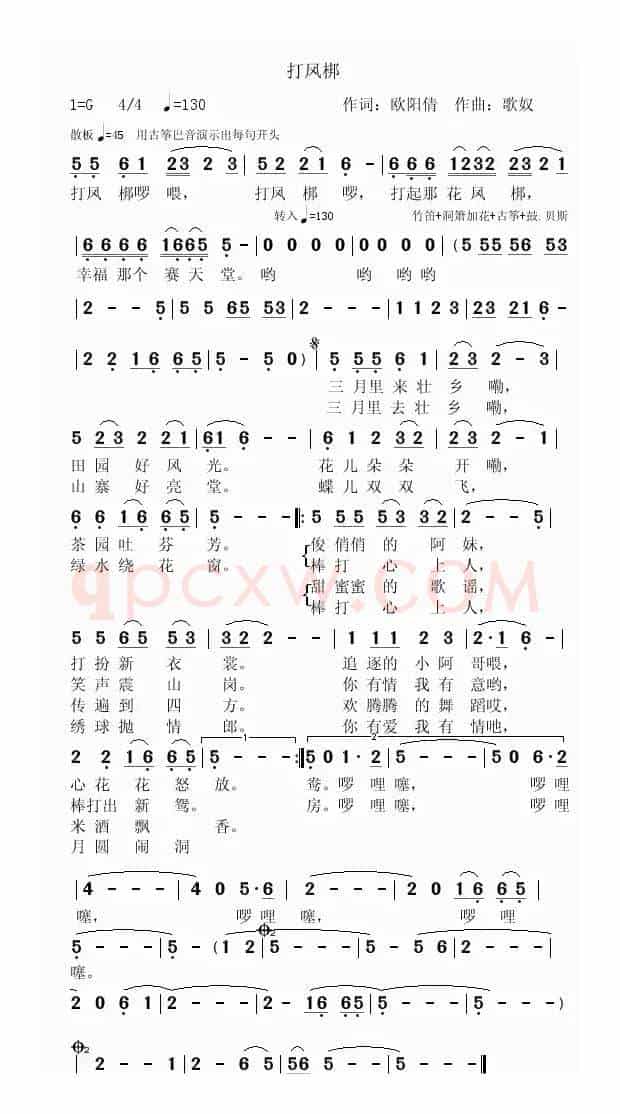 打风梆
1=G 4/4 ♩=130 作词：欧阳倩 作曲：歌奴
散板 ♩=45 用古筝巴音演示出每句开头
5 5 6 1 23 2 3 | 52 2 21 6 - | 6 6 6 1232 23 123 |
打风 梆啰 喂， 打风 梆 啰， 打起那 花 风 梆，
转入 ♩=130 竹笛+洞箫加花+古筝+鼓.贝斯
| 6 6 6 6 1665 5 - | 0 0 0 0 | 0 0 0 0 | (5 55 56 53
幸福 那个 赛 天 堂。 哟 哟 哟哟
| 2 - - 5 | 5 5 65 53 | 2 - - - | 1 1 2 3 | 23 21 6 -
| 2 2 16 65 | 5 - 5 0 ) | 5 55 6 1 | 23 2 - 3
三 月里 来 壮 乡 嘞，
三 月里 去 壮 乡 嘞，
5 23 2 21 | 61 6 - - | 6 1 2 32 | 23 2 - 1
田 园 好 风 光。 花 儿 朵 朵 开 嘞，
山 寨 好 亮 堂。 蝶 儿 双 双 飞，
6 6 16 65 | 5 - - - ‖: 5 55 53 32 | 2 - - 5
茶 园 吐 芬 芳。 俊 俏俏 的 阿 妹，
绿 水 绕 花 窗。 棒 打 心 上 人，
qpcxw.COM
甜 蜜蜜 的 歌 谣，
棒 打 心 上 人，
5 5 65 53 | 32 2 - - | 1 11 1 23 | 2· 1 6 -
打 扮 新 衣 裳。 追 逐的 小 阿 哥喂，
笑 声 震 山 岗。 你 有情 我 有 意哟，
传 遍 到 四 方。 欢 腾腾 的 舞 蹈哎，
绣 球 抛 情 郎。 你 有爱 我 有 情吔，
1 2
2 2 16 65 | 5 - - - :‖ 5 0 1·2 | 5 - - - | 5 0 6·2
心 花 花 怒 放。 鸯。啰 哩 噻， 啰哩
棒打 出 新 鸳。 房。啰 哩 噻， 啰哩
米 酒 飘 香。
月 圆 闹 洞
| 4 - - - | 4 0 5·6 | 2 - - - | 2 0 16 65
噻， 啰 哩 噻， 啰 哩
2
| 5 - - - | 5 - (1 2 | 5 - - - | 5 - 5 6 | 2 - - -
噻。
2 0 6 1 | 2 - - - | 2 - 16 65 | 5 - - - | 5 - - - )
2
| 2 - - 1 | 6 - 6 5 | 56 5 - - | 5 - - - ‖